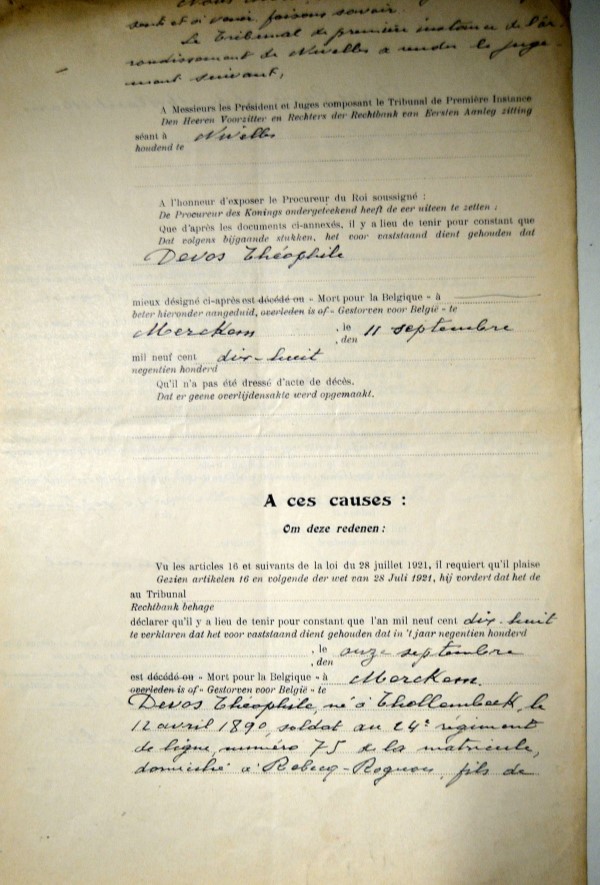 sents et à venir, faisons savoir.
Le Tribunal de première instance de l'ar-
rondissement de Nivelles a rendu le juge-
ment suivant,
A Messieurs les Président et Juges composant le Tribunal de Première Instance
Den Heeren Voorzitter en Rechters der Rechtbank van Eersten Aanleg zitting
séant à Nivelles
houdend te
A l'honneur d'exposer le Procureur du Roi soussigné :
De Procureur des Konings ondergeteekend heeft de eer uiteen te zetten :
Que d'après les documents ci-annexés, il y a lieu de tenir pour constant que
Dat volgens bijgaande stukken, het voor vaststaand dient gehouden dat
Devos Théophile
mieux désigné ci-après est décédé ou « Mort pour la Belgique » à
beter hieronder aangeduid, overleden is of « Gestorven voor België » te
Merckem , le 11 septembre
, den
mil neuf cent dix-huit
negentien honderd
Qu'il n'a pas été dressé d'acte de décès.
Dat er geene overlijdensakte werd opgemaakt.
A ces causes :
Om deze redenen :
Vu les articles 16 et suivants de la loi du 28 juillet 1921, il requiert qu'il plaise
Gezien artikelen 16 en volgende der wet van 28 Juli 1921, hij vordert dat het de
au Tribunal
Rechtbank behage
déclarer qu'il y a lieu de tenir pour constant que l'an mil neuf cent dix-huit
te verklaren dat het voor vaststaand dient gehouden dat in 't jaar negentien honderd
, le onze septembre
, den
est décédé ou « Mort pour la Belgique » à Merckem.
overleden is of « Gestorven voor België » te
Devos Théophile, né à Thollembeek, le
12 avril 1890, soldat au 24e régiment
de ligne, numéro 75 de la matricule,
domicilié à Rebecq-Rognon, fils de